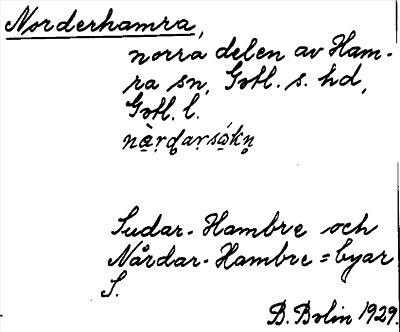 Norderhamra,
norra delen av Ham-
ra sn, Gotl. s. hd,
Gotl. l.
Sudar-Hambre och
Nårdar-Hambre = byar
S.
B. Bolin 1929.